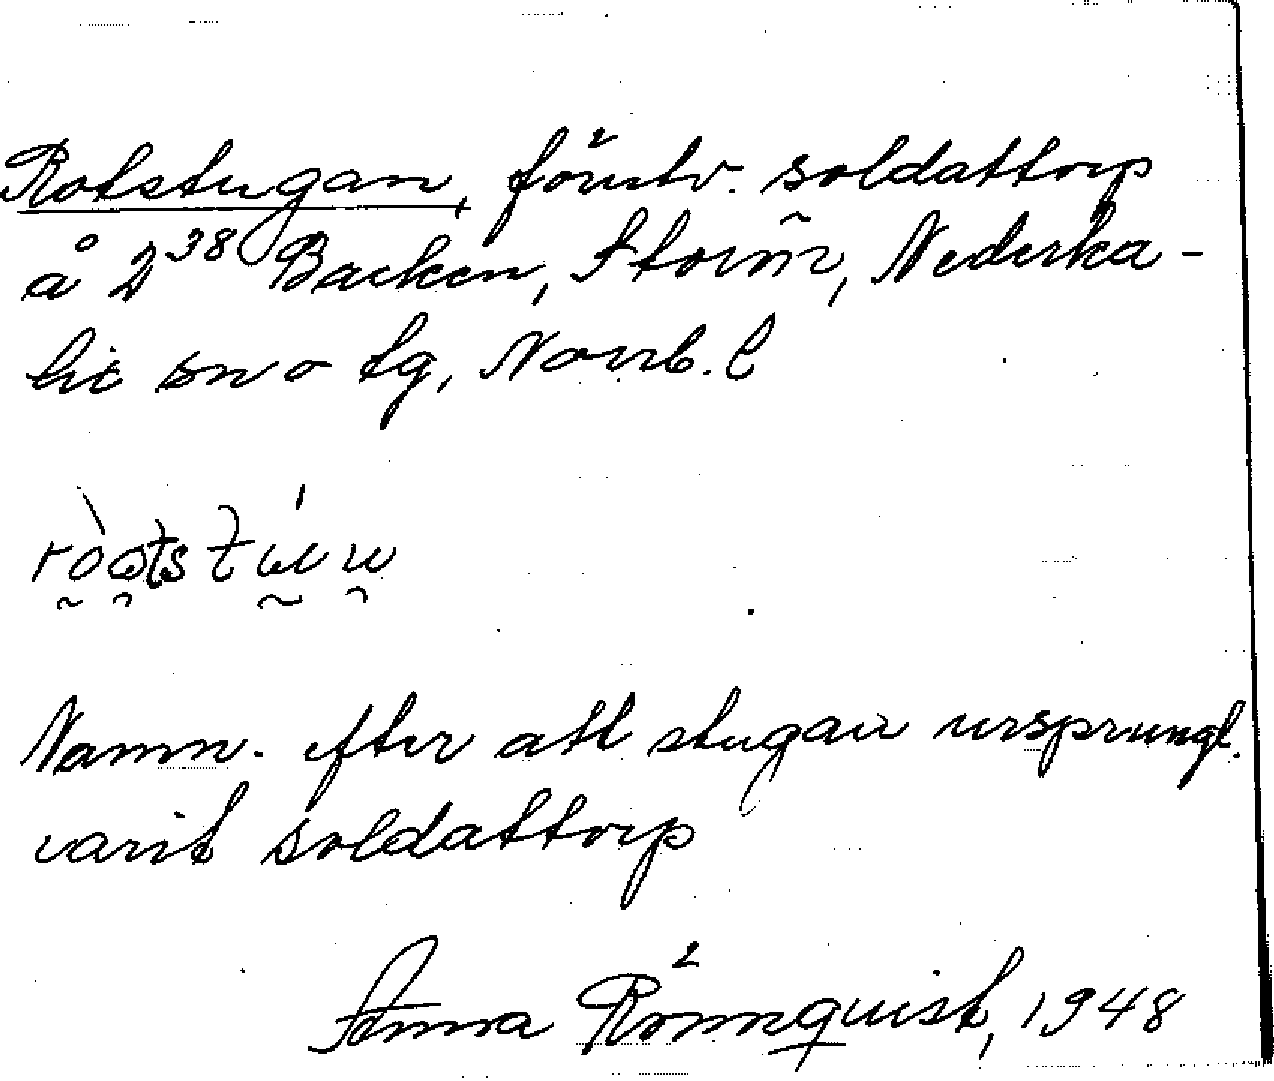 Rotstugan, förutv. soldattorp
å 2³⁸ Backen, Storön, Nederka-
lix sn o tg, Norrb. l
Namn. efter att stugan ursprungl.
varit soldattorp
Anna Rönnquist, 1948